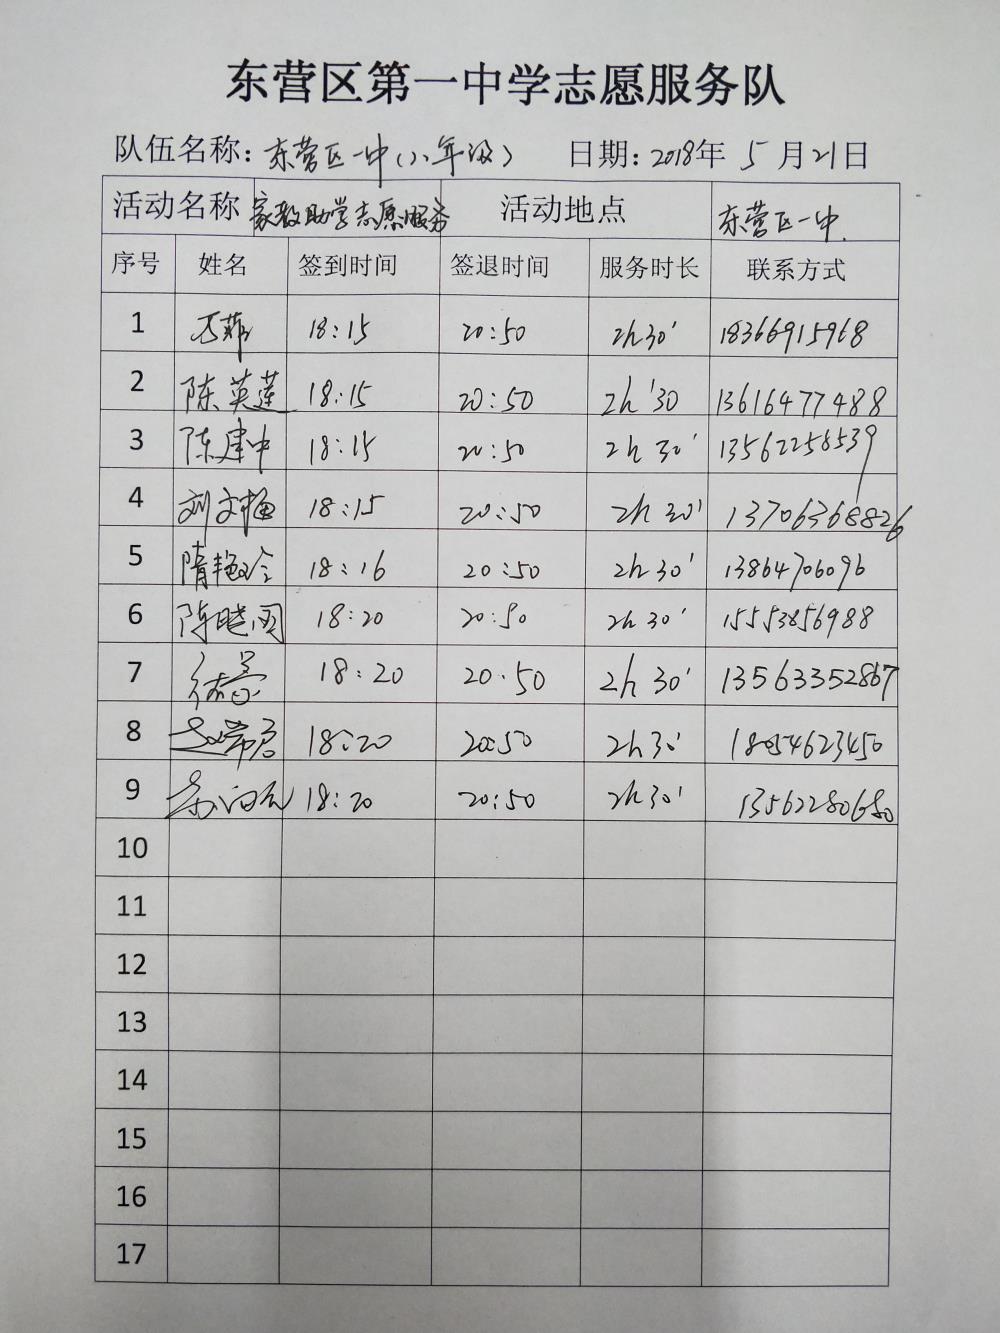 东营区第一中学志愿服务队
队伍名称：东营区一中（八年级） 日期：2018年 5 月21日
活动名称 家教助学志愿服务 活动地点 东营区一中.
序号 姓名 签到时间 签退时间 服务时长 联系方式
1 18:15 20:50 2h30' 18366915968
2 陈英莲 18:15 20:50 2h'30 13616477488
3 陈建中 18:15 20:50 2h 30' 13562258539
4 刘文梅 18:15 20:50 2h 30' 13706368826
5 隋艳玲 18:16 20:50 2h 30' 13864706096
6 陈晓园 18:20 20:50 2h 30' 15553856988
7 18:20 20·50 2h 30' 13563352867
8 18:20 20:50 2h30' 18054623450
9 18:20 20:50 2h30' 13562280680
10
11
12
13
14
15
16
17